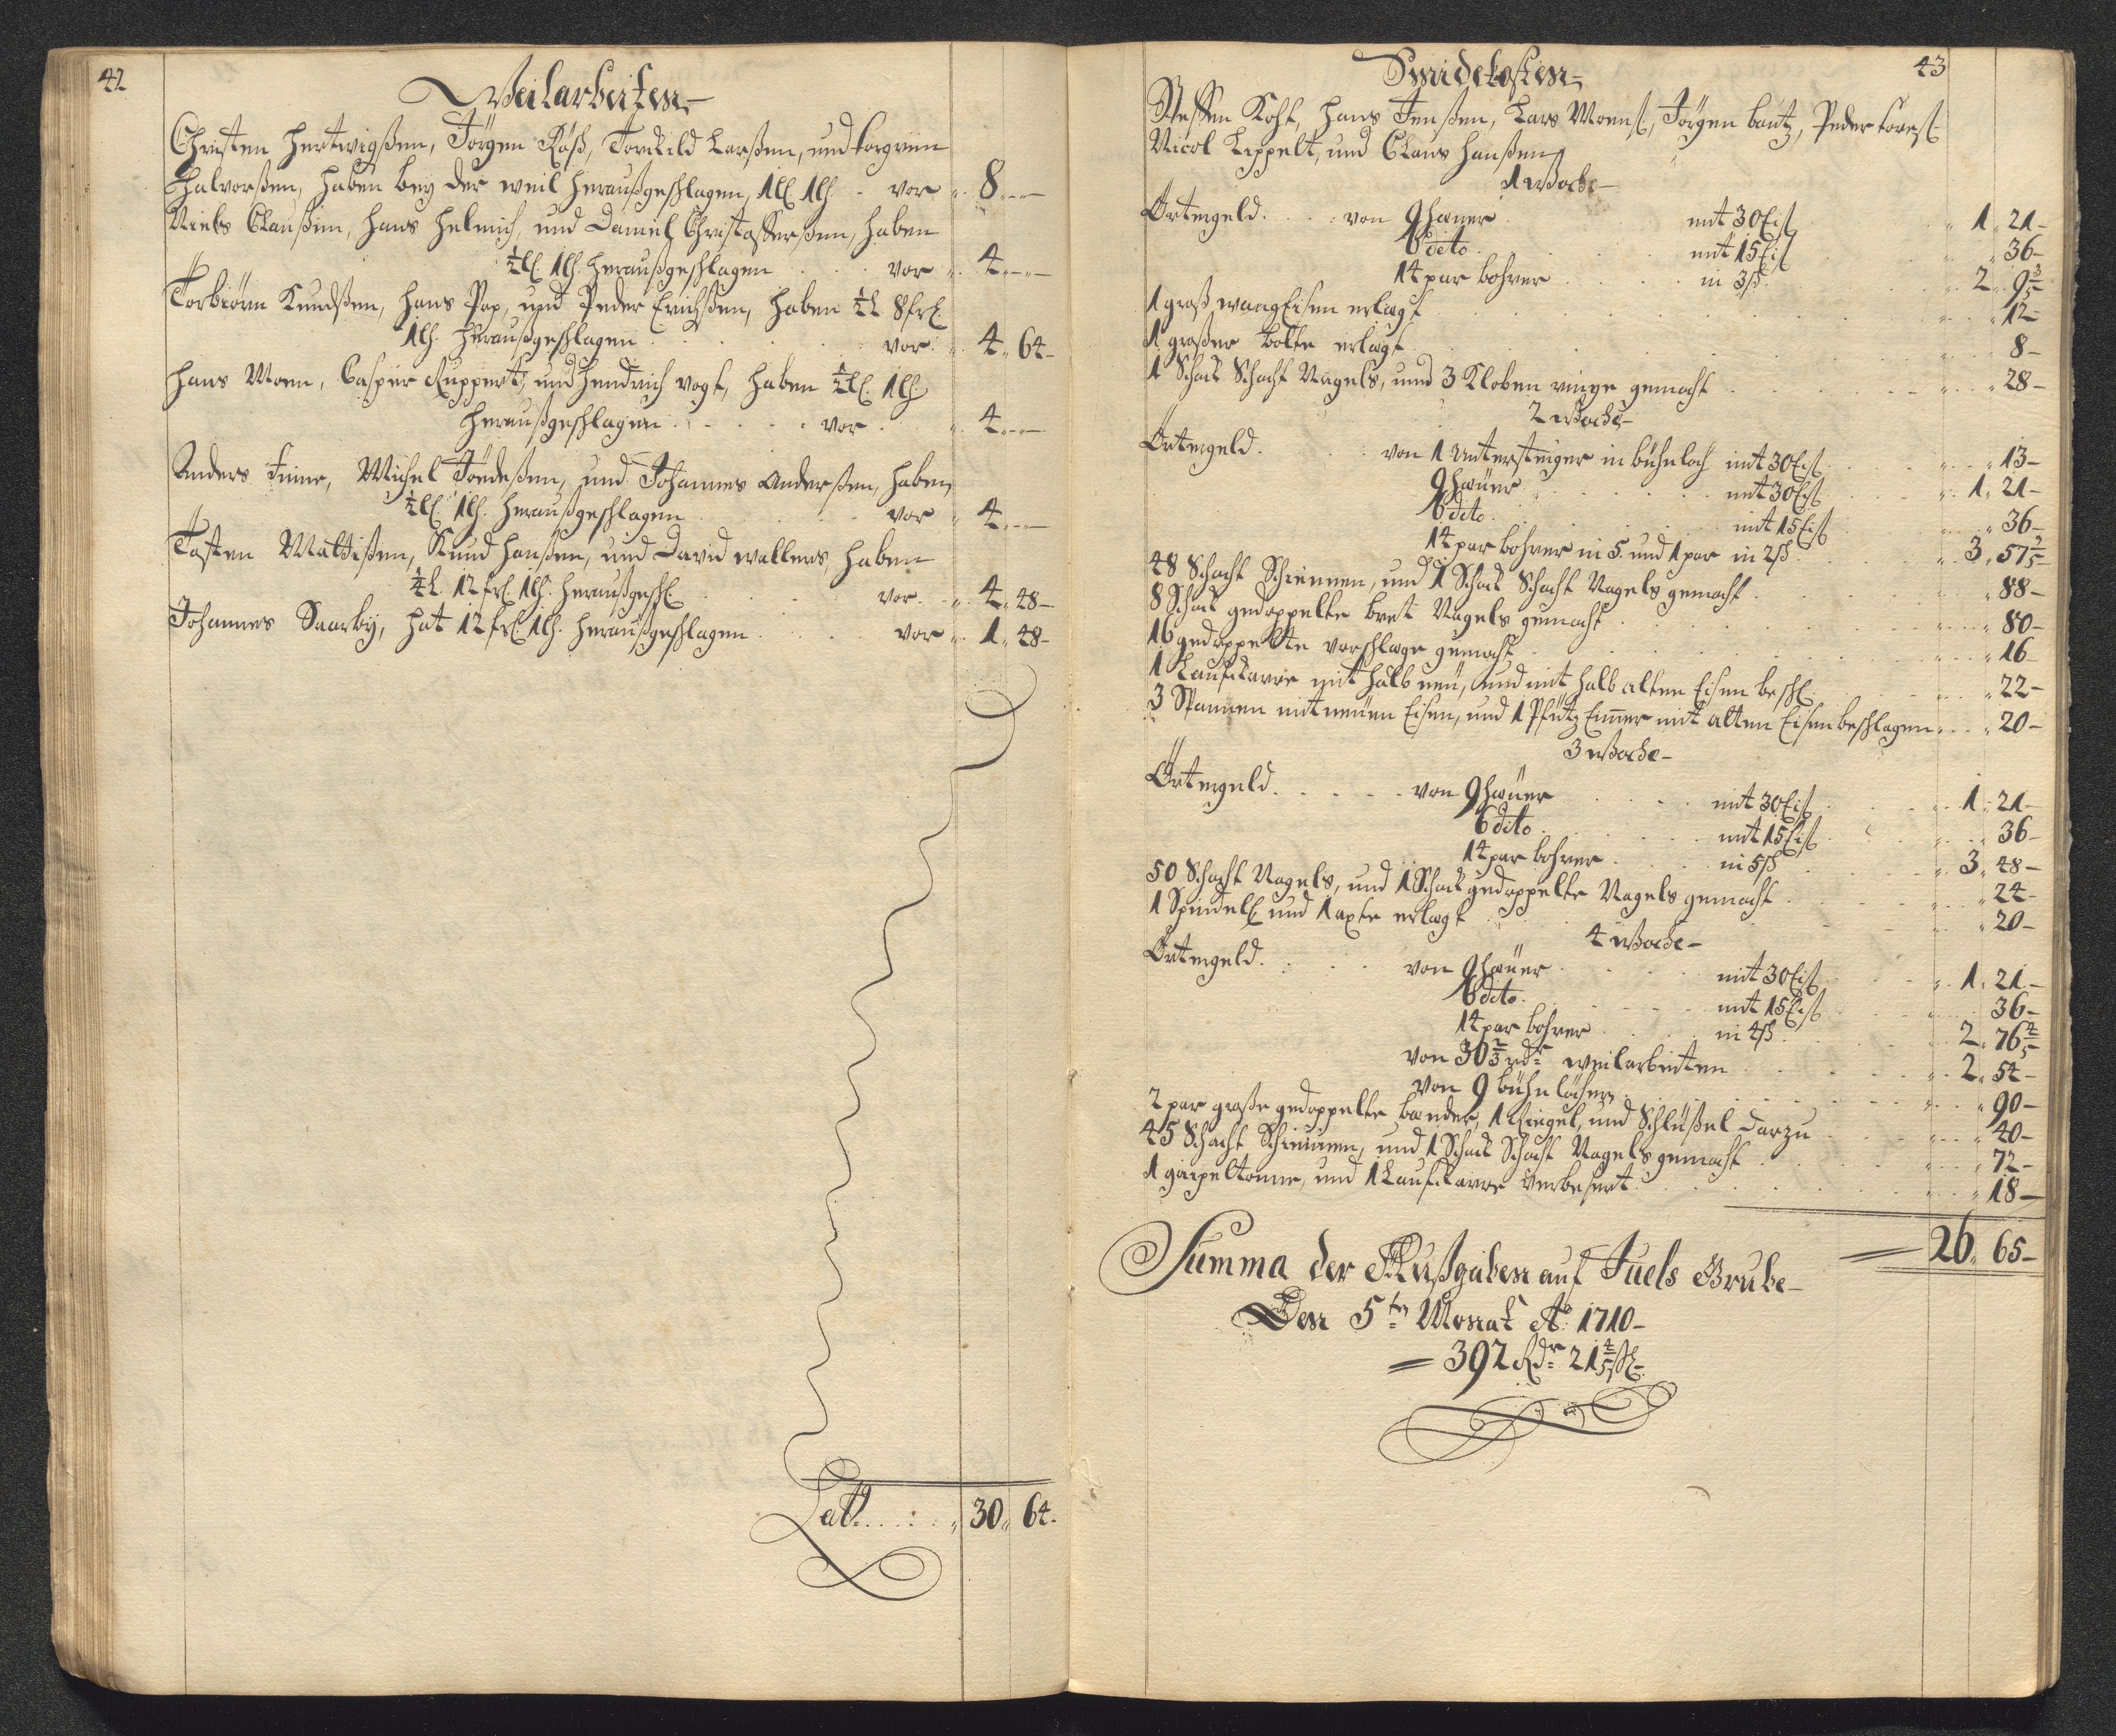 42
Weilarbeiten
Christen Hertwigßen, Jörgen Röß, Torkild Larßen, und Torgrim
Halvorßen, haben bey der weil heraußgeschlagen, 1 ll. 1 lh. vor 8
Niels Claußen, Hans Helmich, und Daniel Christofferßen, haben
½ ll. 1 lh. heraußgeschlagen vor 4
Torbiörn Knudßen, Hans Pop, und Peder Erichßen, haben ½ l. 8 frl.
1 lh. heraußgeschlagen vor 4 64
Hans Moen, Casper Ruppert, und Hendrich Vogt, haben ½ ll. 1 lh
heraußgeschlagen vor 4
Anders Finne, Michel Jördeßen, und Johannes Anderßen, haben
½ ll. 1 lh. heraußgeschlagen vor 4
Tosten Mattißen, Knud Hanßen, und David Wallers, haben
¼ l. 12 frl. 1 lh. heraußgeschl. vor 4 48
Johannes Saarby, hat 12 frl. 1 lh. heraußgeschlagen vor 1 48
Lat. 30 64
43
Smidekosten
Steffen Koht, Hans Jenßen, Lars Moenß, Jörgen bautz, Peder
Nicol Lippelt, und Claus Hanßen
1 Woche
Örtergeld von 9 hauer mit 30 Eiß 1 21
6 dito mit 15 Eiß 36
14 par bohrer in 3 ß 2 9 3/5
1 groß wang Eisen erlagt 12
1 großer bolte erlagt 8
1 Schock Schacht Nagels, und 3 Kloben ringe gemacht 28
2 Woche
Örtergeld von 1 Untersteiger in bühnloch mit 30 Eiß 13
9 haüer mit 30 Eiß 1 21
6 dito mit 15 Eiß 36
14 par bohrer in 5 und 1 par in 2 ß 3 57
48 Schacht Schiennen, und 1 Schock Schacht Nagels gemacht 88
8 Schock gedoppelte bret Nagels gemacht 80
16 gedoppelte vorschlage gemacht 16
1 Laufkarre mit halb neü, und mit halb alten Eisen beschl. 22
3 Spannen mit neüen Eisen, und 1 Pfütz Eimer mit alten Eisen beschlagen 20
3 Woche
Örtergeld von 9 haüer mit 30 Eiß 1 21
6 dito mit 15 Eiß 36
14 par bohrer in 5 ß 3 48
50 Schacht Nagels, und 1 Schock gedoppelte Nagels gemacht 24
1 Spindel und 1 axte erlagt 20
4 Woche
Örtergeld von 9 haüer mit 30 Eiß 1 21
6 dito mit 15 Eiß 36
14 par bohrer in 4 ß 2 76 4/5
von 30 2/3 rdr weilarbeiten 2 54
von 9 bühnlöcher 90
2 par große gedoppelte bender, 1 Riegel, und Schlüßel darzu 40
45 Schacht Schiennen, und 1 Schock Schacht Nagels gemacht 72
1 gäipeltonne, und 1 Laufkarre verbesert 18
26 65
Summa der Außgaben auf Juels Grube
Den 5ten Monat Ao 1710
392 Rdr 21 4/5 ßl